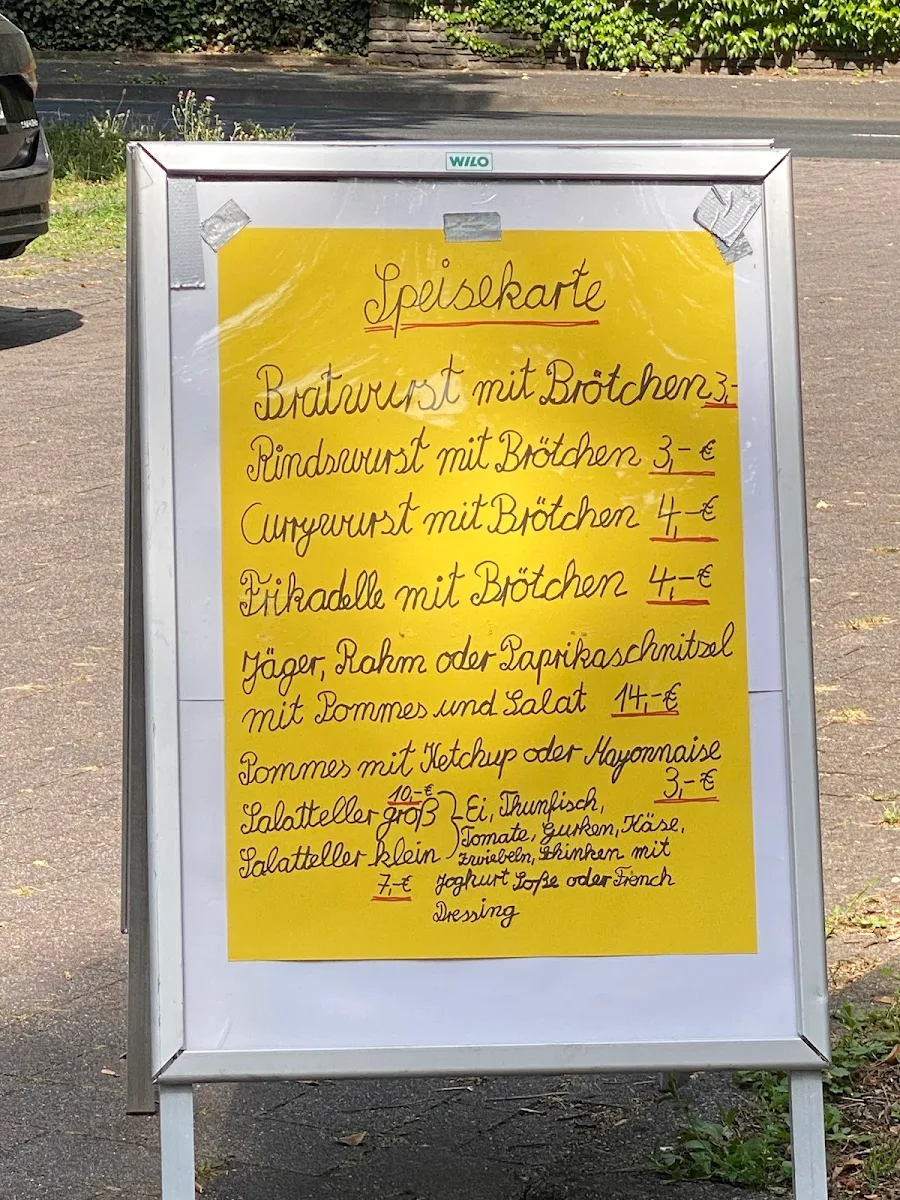 WILO
Speisekarte
Bratwurst mit Brötchen 3,-
Rindswurst mit Brötchen 3,-€
Currywurst mit Brötchen 4,-€
Frikadelle mit Brötchen 4,-€
Jäger, Rahm oder Paprikaschnitzel
mit Pommes und Salat 14,-€
Pommes mit Ketchup oder Mayonnaise
3,-€
10,-€
Salatteller groß
Salatteller klein
7,-€
Ei, Thunfisch,
Tomate, Gurken, Käse,
Zwiebeln, Shinken mit
Joghurt Soße oder French
Dressing